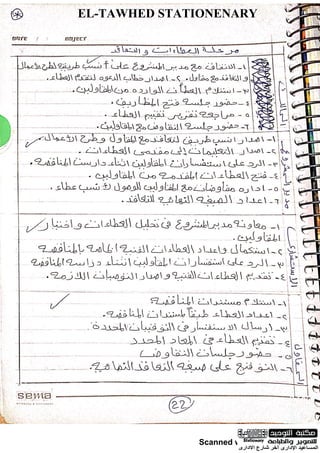 EL-TAWHED STATIONENARY
DATE / / SUBJECT
مرحلة العطاءات والتعاقد
١- الاتفاق مع مدير المشروع على أنسب طريقة لطرح الأعمال
والتعاقد مع مقاول. ٢- اصدار خطاب الدعوه لتقديم العطاء.
٣- استلام العطاءات الوارده من المقاولين.
٤- حضور جلسة فتح المظاريف.
٥- مراجعة تقرير تقييم العطاء.
٦- حضور جلسة التفاوض مع المقاولين.
١- اصدار انسب طريق للتعاقد مع المقاول وطرح الأعمال.
٢- اصدار التعليمات إلى مقدمى العطاءات.
٣- الرد على استفسارات المقاولين اثناء دراسة المناقصه.
٤- فتح العطاءات المقدمه من المقاولين.
٥- اداره مفاوضات مع المقاولين للوصول لأنسب عطاء.
٦- اعداد الصيغه النهائيه للتعاقد.
مدير المشروع
١- معاونة مدير المشروع فى تحليل العطاءات واختيار
المقاولين.
٢- استكمال واعداد العطاءات الفنية الخاصه بالمناقصه
٣- الرد على استفسارات المقاولين اثناء دراسة المناقصه
٤- تقييم العطاءات الفنيه واصدار التوصيات اللازمه.
الاستشارى
١- استلام مستندات المناقصه
٢- اعداد العطاء طبقاً لمستندات المناقصه.
٣- ارسال الاستفسار فى التوقيتات المحددة
٤- تقديم العطاء فى المعاد المحدد
٥- حضور جلسات التفاوض
٦- التوقيع على صيغه التعاقد النهائيه.
المقاول
sema
22
مكتبة التوحيد
للتصوير والطباعة
المساعيد الإدارى آخر شارع الإدارى
Scanned